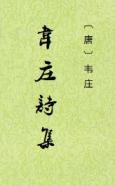 〔唐〕韦庄
韋莊詩集